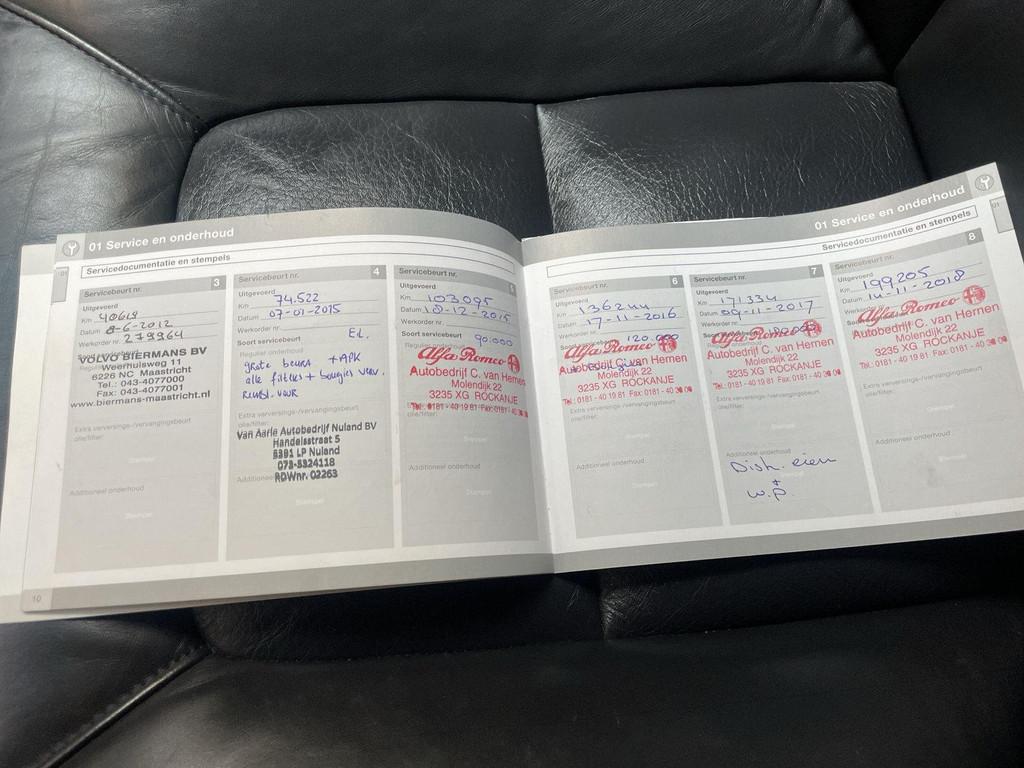 01 Service en onderhoud
Servicedocumentatie en stempels
Servicebeurt nr. 3
Uitgevoerd
Km 40619
Datum 8-6-2012
Werkorder nr. 279964
VOLVO BIERMANS BV
Weerhuisweg 11
6226 NC Maastricht
Tel.: 043-4077000
Fax: 043-4077001
www.biermans-maastricht.nl
Extra verversings-/vervangingsbeurt
olie/filter:
Stempel
Additioneel onderhoud
Stempel
10
Servicebeurt nr. 4
Uitgevoerd
Km 74.522
Datum 07-01-2015
Werkorder nr.
EL.
Soort servicebeurt
Regulier onderhoud
grote beurt + APK
alle filters + bougies verv.
Extra verversings-/vervangingsbeurt
olie/filter:
Van Aarle Autobedrijf Nuland BV
Handelsstraat 5
5391 LP Nuland
073-5324118
RDWnr. 02263
Additioneel onderhoud
Stempel
Servicebeurt nr. 5
Uitgevoerd
Km 103095
Datum 18-12-2015
Werkorder nr.
Soort servicebeurt 90.000
Alfa Romeo
Autobedrijf C. van Hernen
Molendijk 22
3235 XG ROCKANJE
Tel.: 0181 - 40 19 81 Fax: 0181 -
Extra verversings-/vervangingsbeurt
olie/filter:
Stempel
Additioneel onderhoud
Stempel
01 Service en onderhoud
01
Servicedocumentatie en stempels
Servicebeurt nr. 6
Uitgevoerd
Km
Datum 17-11-2016
Werkorder nr.
Soort servicebeurt 120.000
Alfa Romeo
Autobedrijf C. van Hernen
Molendijk 22
3235 XG ROCKANJE
Tel.: 0181 - 40 19 81 Fax: 0181 - 40
Extra verversings-/vervangingsbeurt
olie/filter:
Stempel
Additioneel onderhoud
Stempel
Servicebeurt nr. 7
Uitgevoerd
Km 171334
Datum 09-11-2017
Werkorder nr.
Soort servicebeurt
Alfa Romeo
Autobedrijf C. van Hernen
Molendijk 22
3235 XG ROCKANJE
Tel.: 0181 - 40 19 81 Fax: 0181 - 40
Extra verversings-/vervangingsbeurt
olie/filter:
Additioneel onderhoud
+
w.p.
Servicebeurt nr. 8
Uitgevoerd
Km 199205
Datum 14-11-2018
Werkorder nr.
Alfa Romeo
Autobedrijf C. van Hernen
Molendijk 22
3235 XG ROCKANJE
Tel.: 0181 - 40 19 81 Fax: 0181 - 40
Extra verversings-/vervangingsbeurt
olie/filter:
Stempel
Additioneel onderhoud
Stempel